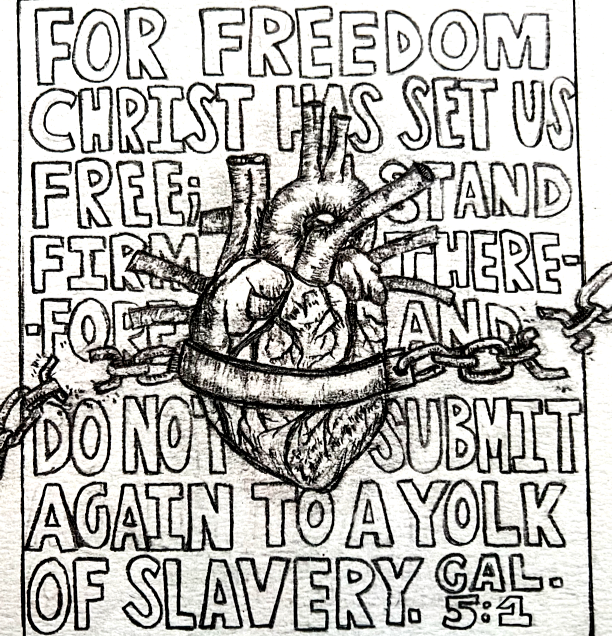 FOR FREEDOM
CHRIST HAS SET US
FREE; STAND
FIRM THERE-
-FORE AND
DO NOT SUBMIT
AGAIN TO A YOLK
OF SLAVERY. GAL.
5:1